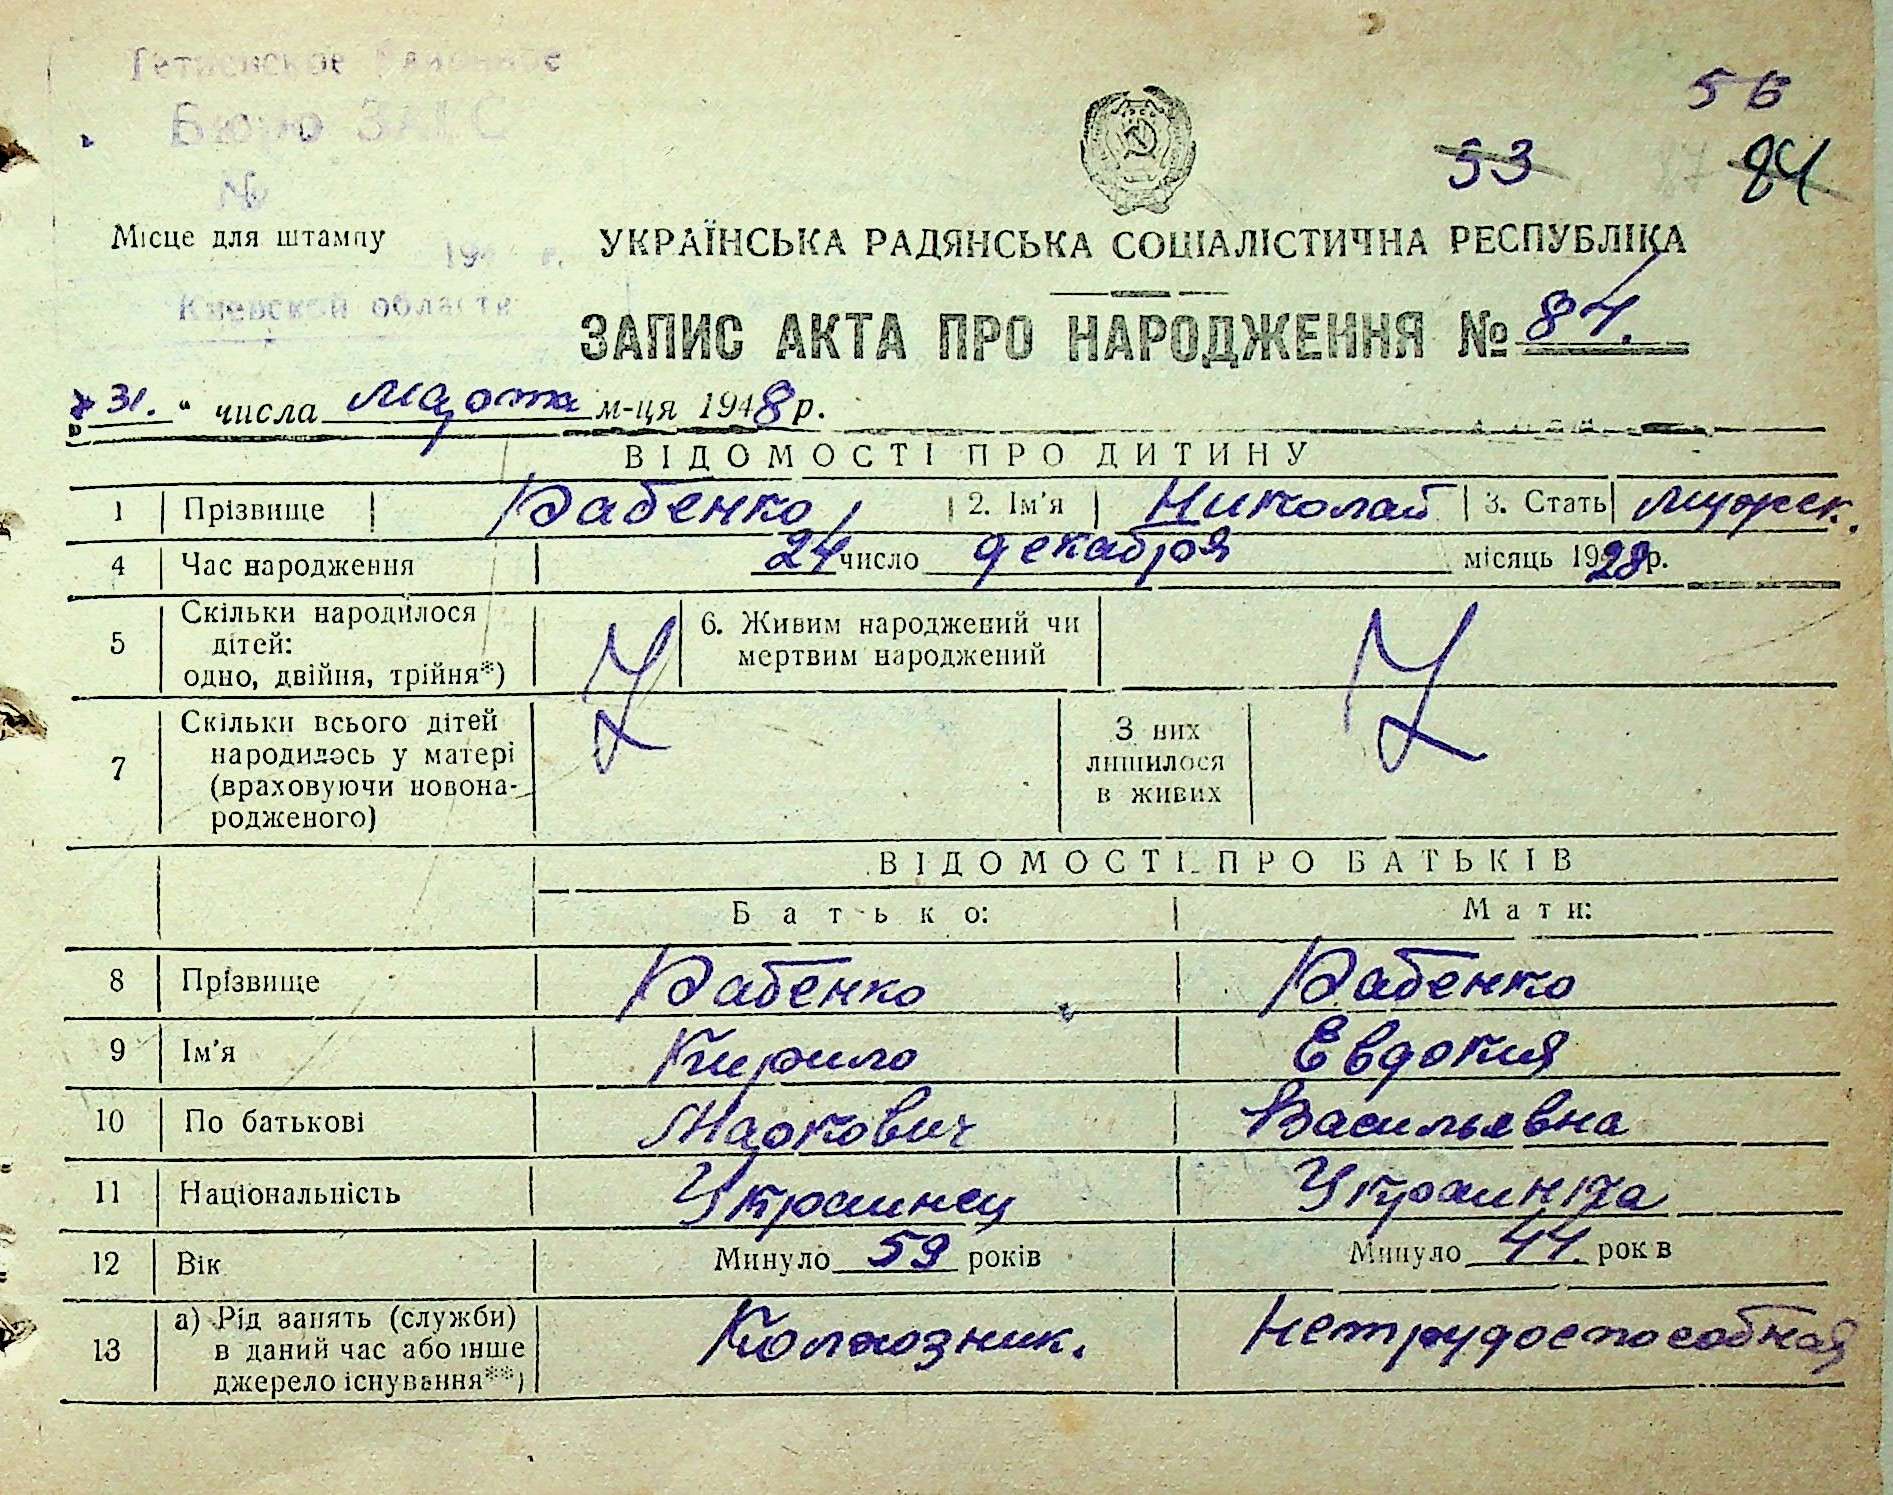 Бюро ЗАГС
№
56
53
87
84
Місце для штампу
194 г.
Киевской области
УКРАЇНСЬКА РАДЯНСЬКА СОЦІАЛІСТИЧНА РЕСПУБЛІКА
ЗАПИС АКТА ПРО НАРОДЖЕННЯ № 84.
„31." числа марта м-ця 1948 р.
ВІДОМОСТІ ПРО ДИТИНУ
1 Прізвище Бабенко 2. Ім'я Николай 3. Стать мужск.
4 Час народження 24 число декабря місяць 1928 р.
5 Скільки народилося дітей: одно, двійня, трійня*) 6. Живим народжений чи мертвим народжений
7 Скільки всього дітей народилось у матері (враховуючи новонародженого) З них лишилося в живих
ВІДОМОСТІ ПРО БАТЬКІВ
Батько: Мати:
8 Прізвище Бабенко Бабенко
9 Ім'я Кирило Евдокия
10 По батькові Маркович Васильевна
11 Національність Украинец Украинка
12 Вік Минуло 59 років Минуло 44. років
13 а) Рід занять (служби) в даний час або інше джерело існування**) Колхозник. Нетрудоспособная